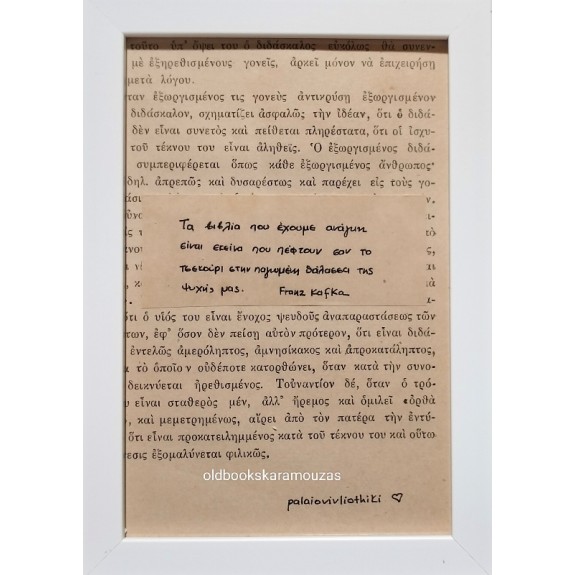 τοῦτο ὑπ' ὄψει του ὁ διδάσκαλος εὐκόλως θὰ συνεν-
μὲ ἐξηρεθισμένους γονεῖς, ἀρκεῖ μόνον νὰ ἐπιχειρήσῃ
μετὰ λόγου.
ταν ἐξωργισμένος τις γονεὺς ἀντικρύσῃ ἐξωργισμένον
διδάσκαλον, σχηματίζει ἀσφαλῶς τὴν ἰδέαν, ὅτι ὁ διδά-
δὲν εἶναι συνετὸς καὶ πείθεται πληρέστατα, ὅτι οἱ ἰσχυ-
τοῦ τέκνου του εἶναι ἀληθεῖς. Ὁ ἐξωργισμένος διδά-
συμπεριφέρεται ὅπως κάθε ἐξωργισμένος ἄνθρωπος·
δηλ. ἀπρεπῶς καὶ δυσαρέστως καὶ παρέχει εἰς τοὺς γο-
Τα βιβλία που έχουμε ανάγκη
είναι εκείνα που πέφτουν σαν το
τσεκούρι στην παγωμένη θάλασσα της
ψυχής μας. Franz Kafka
ὅτι ὁ υἱός του εἶναι ἔνοχος ψευδοῦς ἀναπαραστάσεως τῶν
των, ἐφ' ὅσον δὲν πείσῃ αὐτὸν πρότερον, ὅτι εἶναι διδά-
ἐντελῶς ἀμερόληπτος, ἀμνησίκακος καὶ ἀπροκατάληπτος,
τὸ ὁποῖον οὐδέποτε κατορθώνει, ὅταν κατὰ τὴν συνο-
δεικνύεται ἠρεθισμένος. Τοὐναντίον δέ, ὅταν ὁ τρό-
υ εἶναι σταθερὸς μέν, ἀλλ' ἤρεμος καὶ ὁμιλεῖ «ὀρθὰ
, καὶ μεμετρημένως, αἴρει ἀπὸ τὸν πατέρα τὴν ἐντύ-
ὅτι εἶναι προκατειλημμένος κατὰ τοῦ τέκνου του καὶ οὕτω
εσις ἐξομαλύνεται φιλικῶς.
oldbookskaramouzas
palaiovivliothiki ♡